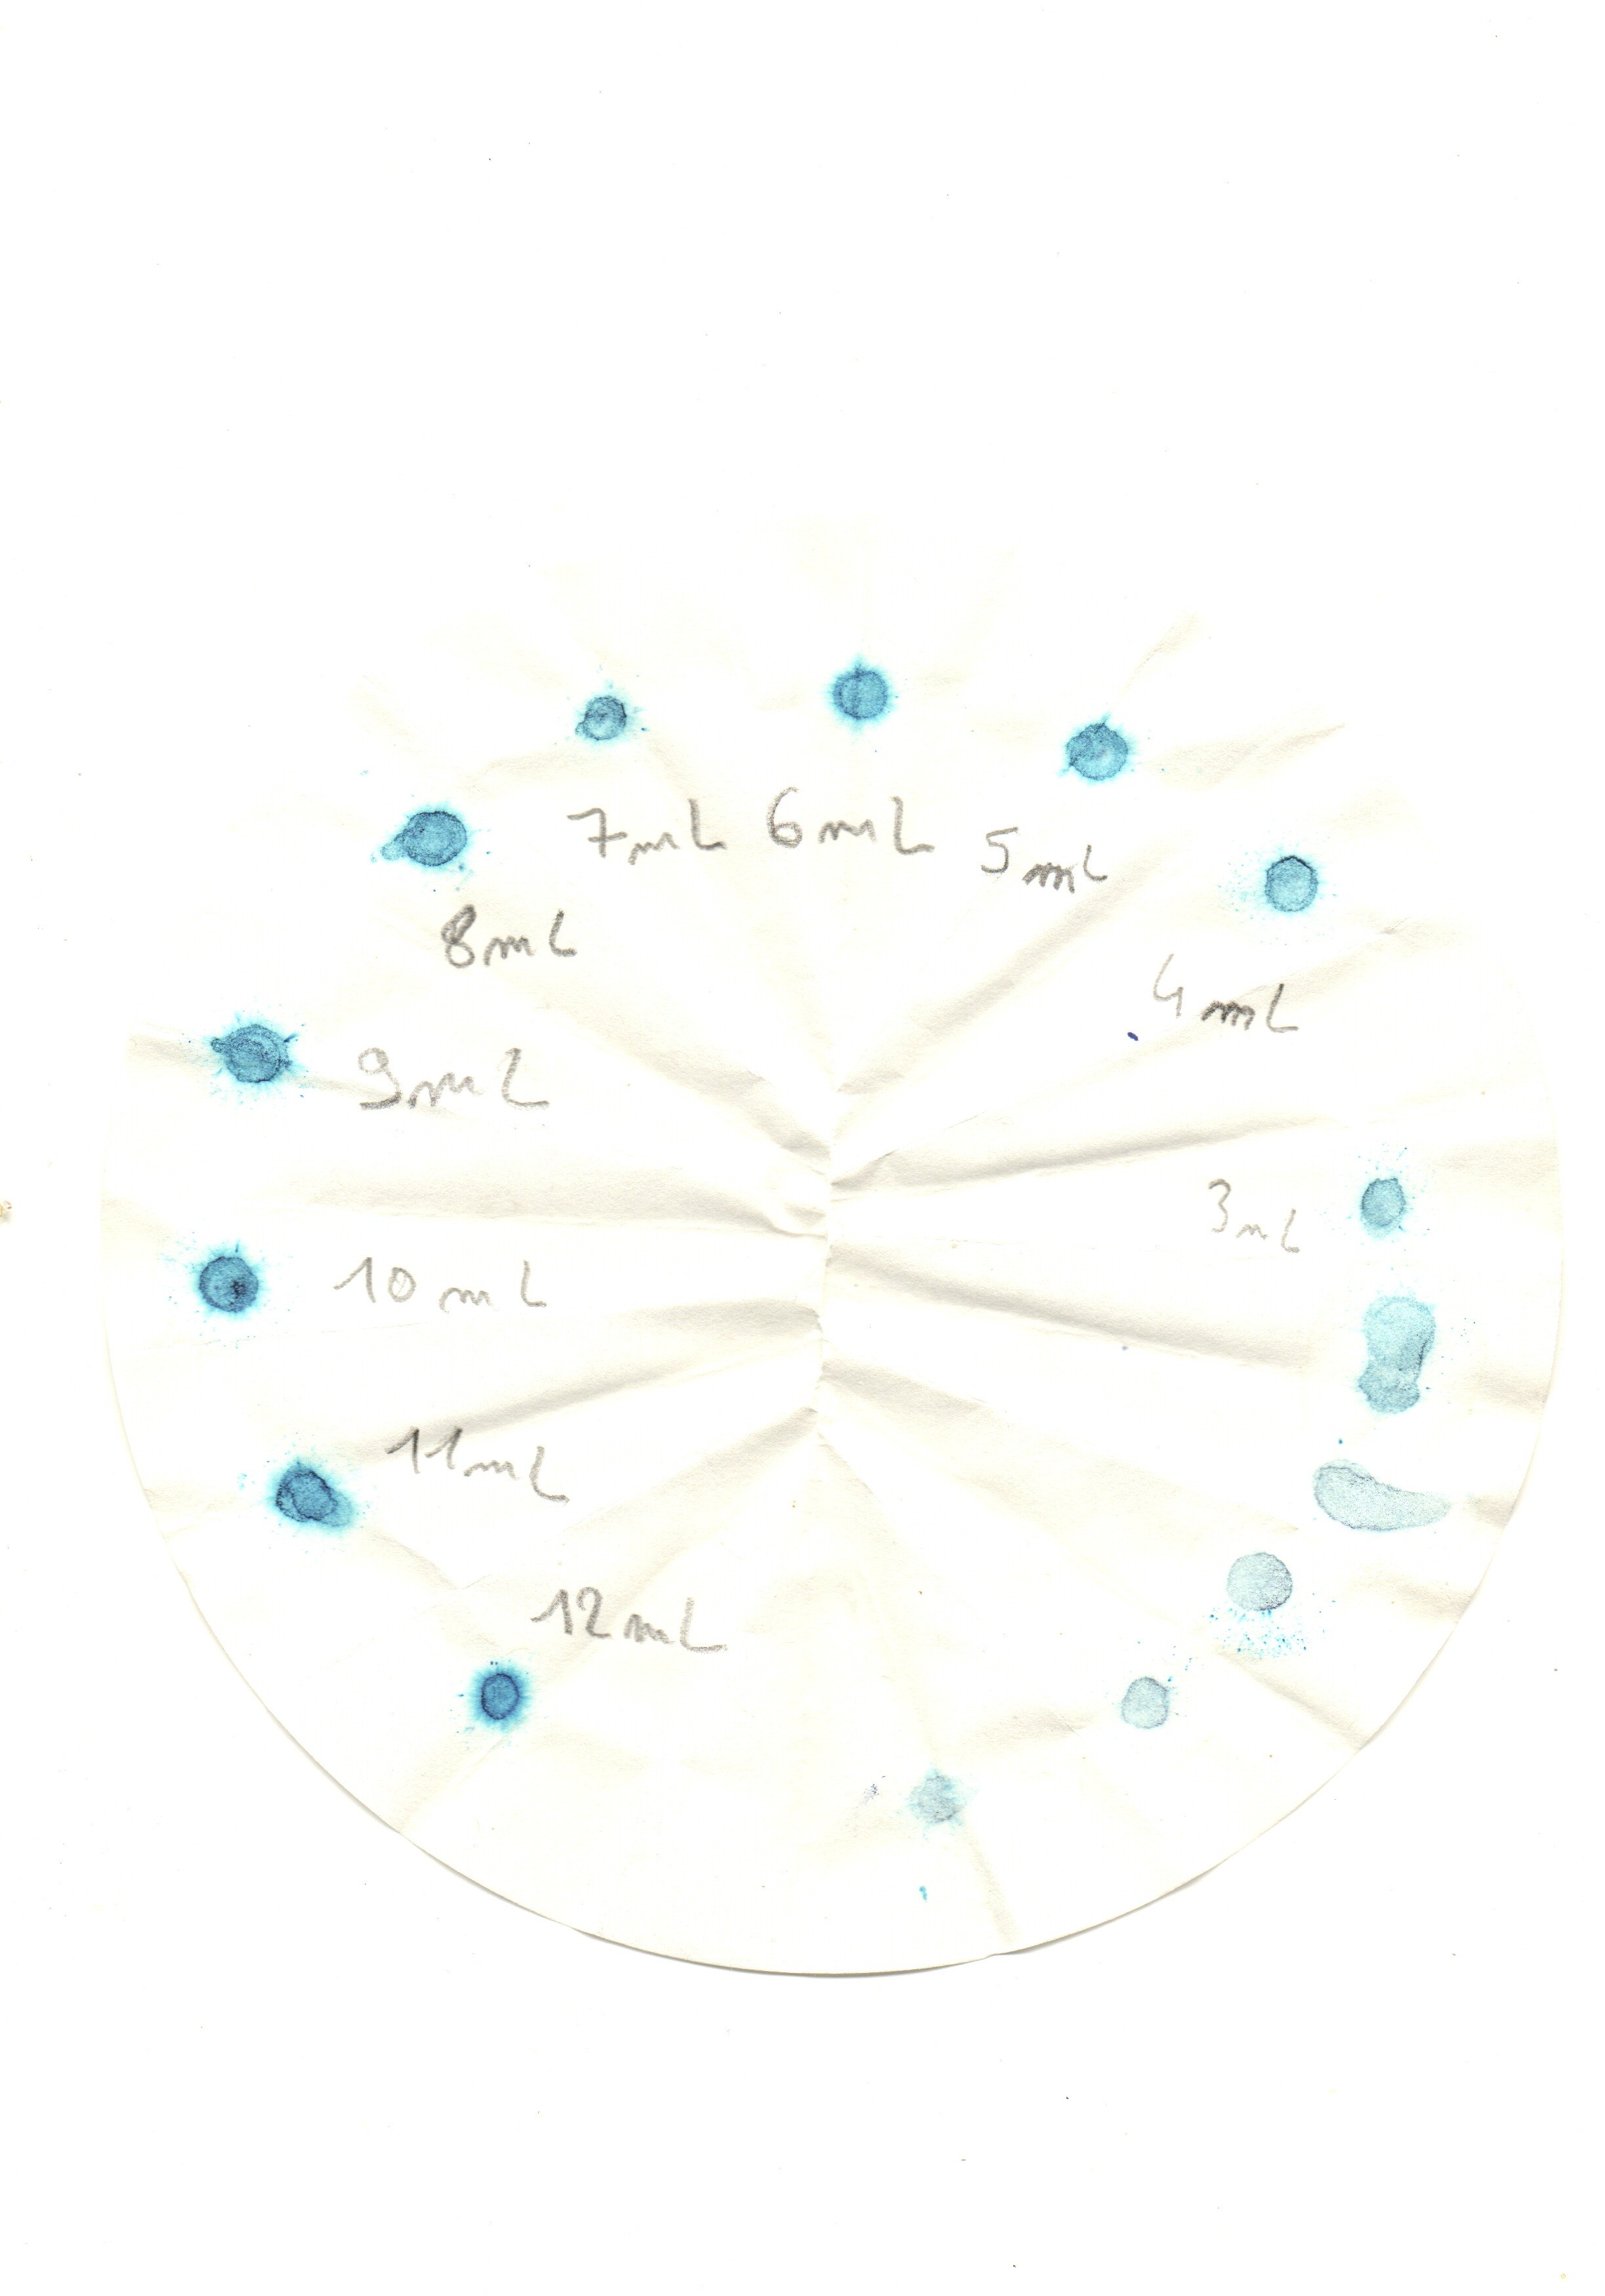 7mL 6mL 5mL
8mL
4mL
9mL
3mL
10mL
11mL
12mL